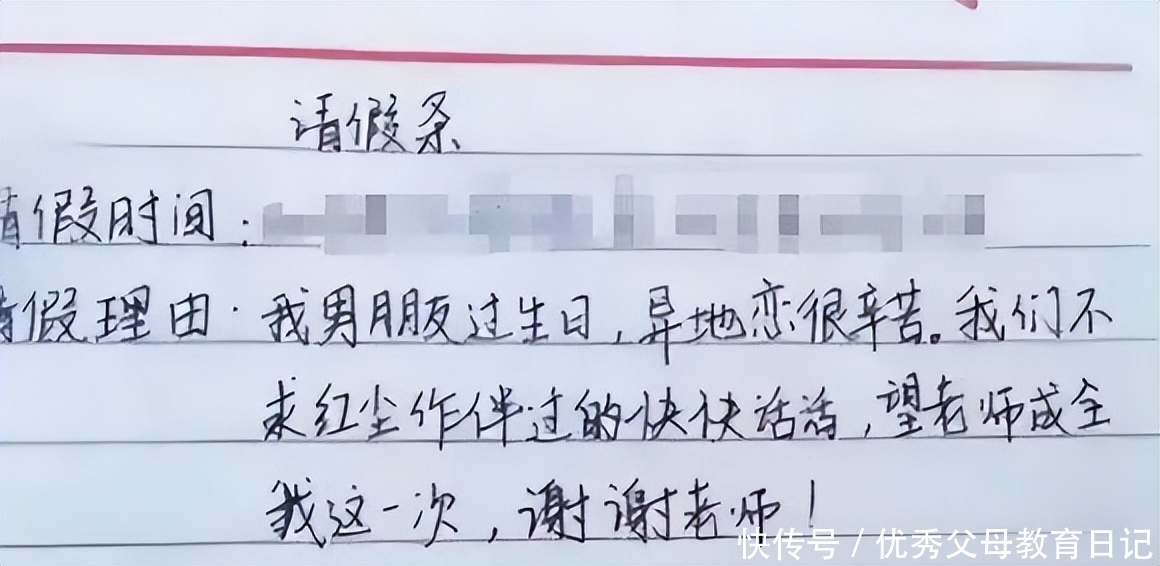 请假条
请假时间：
请假理由：我男朋友过生日，异地恋很辛苦。我们不
求红尘作伴过的快快活活，望老师成全
我这一次，谢谢老师！
快传号 / 优秀父母教育日记